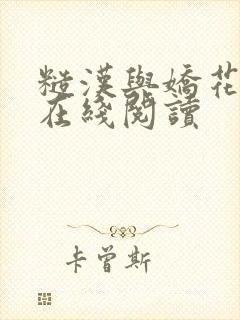 糙漢與嬌花
在綫閱讀
卡曾斯